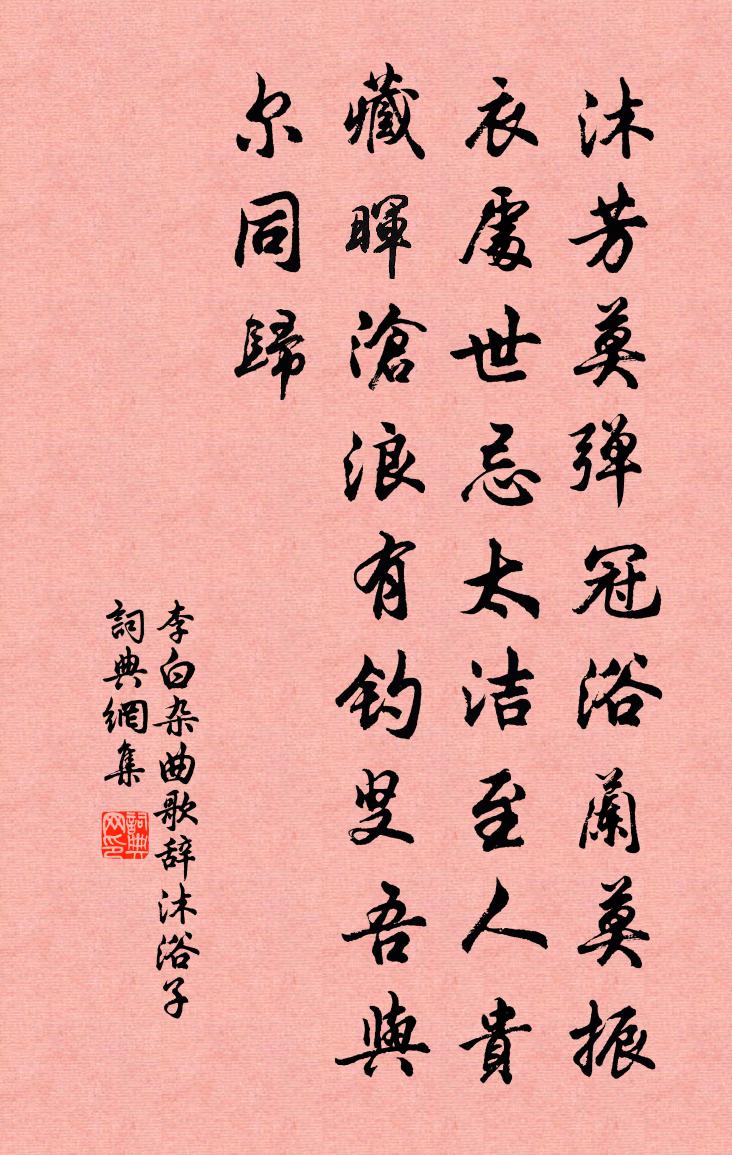 沐芳莫弹冠浴蘭莫振
衣處世忌太洁至人貴
藏暉滄浪有钓叟吾與
尔同歸
李白杂曲歌辞沐浴子
詞典網集
詞典网印